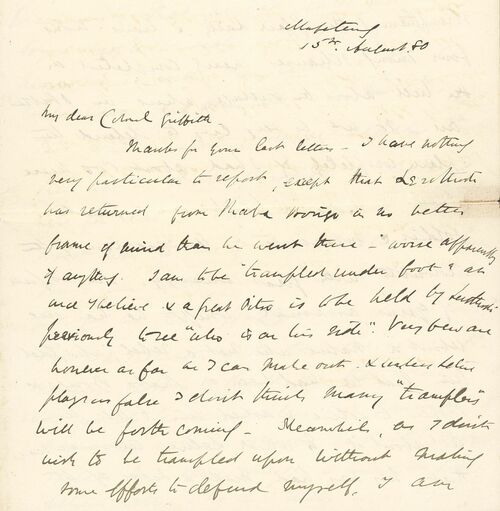 Mafeteng
15th August. 80
My dear Colonel Griffith
Thanks for your last letters - I have nothing
very particular to report, except that Lerothodi
has returned from Thaba Bosigo in no better
frame of mind than he went there - worse apparently
if anything. I am to be "trampled under foot" at
once I believe & a great Pitso is to be held by Lerothodi
previously to see "who is on his side". Very few are
however as far as I can make out. & unless
plays us false I don't think many "tramplers"
will be forthcoming - Meanwhile, as I don't
wish to be trampled upon without making
some efforts to defend myself, I am